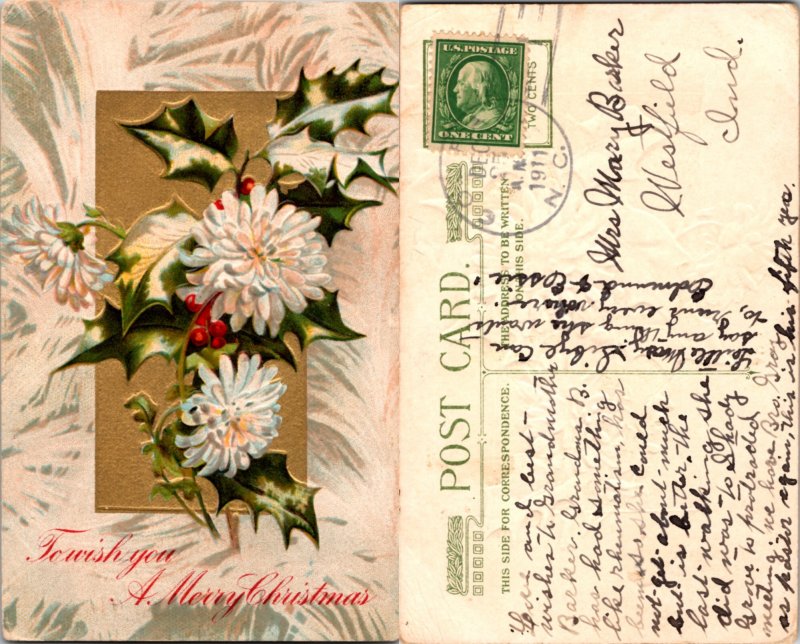 To wish you
A Merry Christmas
U.S. POSTAGE
ONE CENT
TWO CENTS
DEC
A.M.
1911
N.C.
POST CARD.
THE ADDRESS TO BE WRITTEN
ON THIS SIDE.
THIS SIDE FOR CORRESPONDENCE.
Mrs Mary Barker
Westfield
Ind.
Love and best-
wishes to Grandmother
Barker. Grandma B.
has had something
like rheumatism, has
seemed she could
not get about much
but is better. The
last walking she
did was to Shady
Grove to protracted
meeting, we have Geo. Gray
as pastor again, this is his fifth ya.
Little Mary Elilye can
say anything she wants
to, runs every where.
Edmund &